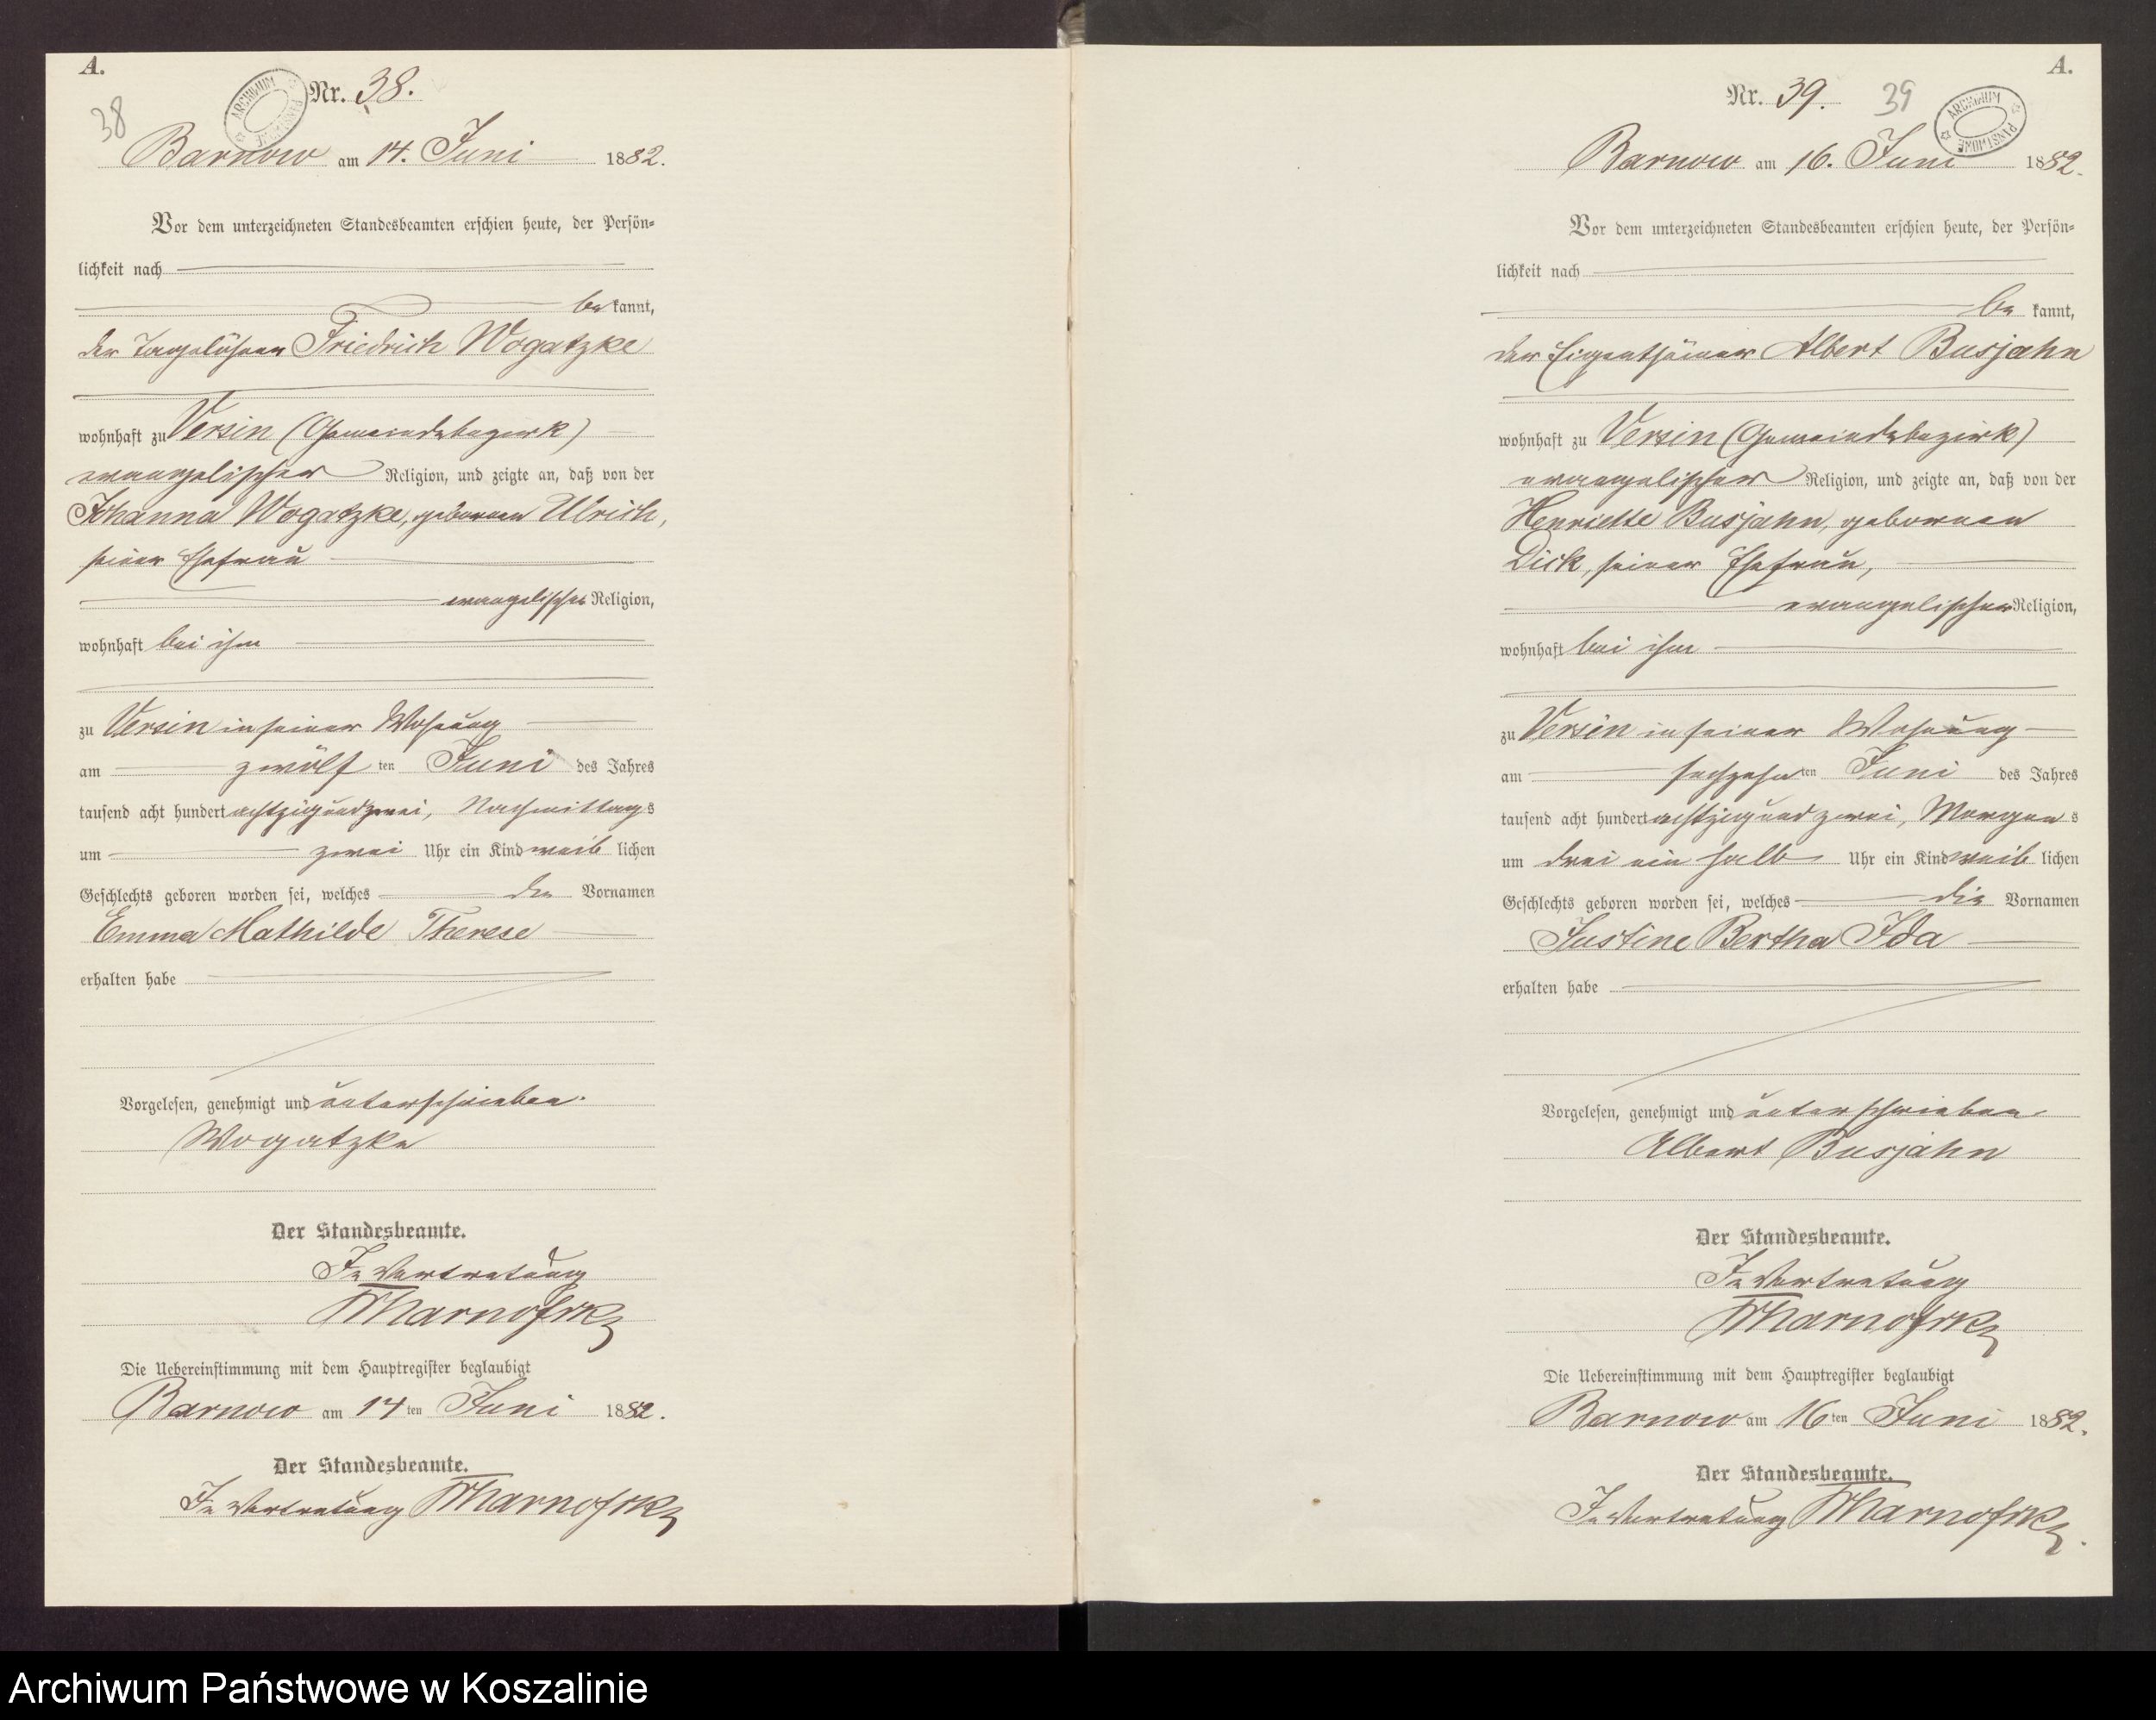 A.
38
ARCHIWUM PAŃSTWOWE
Nr. 38.
Barnow am 14. Juni 1882.
Vor dem unterzeichneten Standesbeamten erschien heute, der Persön-
lichkeit nach
be kannt,
der Tagelöhner Friedrich Wogatzke
wohnhaft zu Versin (Gemeindebezirk)
evangelischer Religion, und zeigte an, daß von der
Johanna Wogatzke, geborenen Ulrich,
seiner Ehefrau
evangelischer Religion,
wohnhaft bei ihm
zu Versin in seiner Wohnung
am zwölf ten Juni des Jahres
tausend acht hundert achtzig und zwei, Nachmittags
um zwei Uhr ein Kind weib lichen
Geschlechts geboren worden sei, welches die Vornamen
Emma Mathilde Therese
erhalten habe
Vorgelesen, genehmigt und unterschrieben.
Wogatzke
Der Standesbeamte.
In Vertretung
Die Uebereinstimmung mit dem Hauptregister beglaubigt
Barnow am 14 ten Juni 1882.
Der Standesbeamte.
In Vertretung
A.
Nr. 39.
39
ARCHIWUM PAŃSTWOWE
Barnow am 16. Juni 1882.
Vor dem unterzeichneten Standesbeamten erschien heute, der Persön-
lichkeit nach
be kannt,
der Eigenthümer Albert Busjahn
wohnhaft zu Versin (Gemeindebezirk)
evangelischer Religion, und zeigte an, daß von der
Henriette Busjahn, geborenen
Dick, seiner Ehefrau,
evangelischer Religion,
wohnhaft bei ihm
zu Versin in seiner Wohnung
am sechzehn ten Juni des Jahres
tausend acht hundert achtzig und zwei, Morgens
um drei ein halb Uhr ein Kind weib lichen
Geschlechts geboren worden sei, welches die Vornamen
Justine Bertha Ida
erhalten habe
Vorgelesen, genehmigt und unterschrieben
Albert Busjahn
Der Standesbeamte.
In Vertretung
Die Uebereinstimmung mit dem Hauptregister beglaubigt
Barnow am 16 ten Juni 1882.
Der Standesbeamte.
In Vertretung
Archiwum Państwowe w Koszalinie